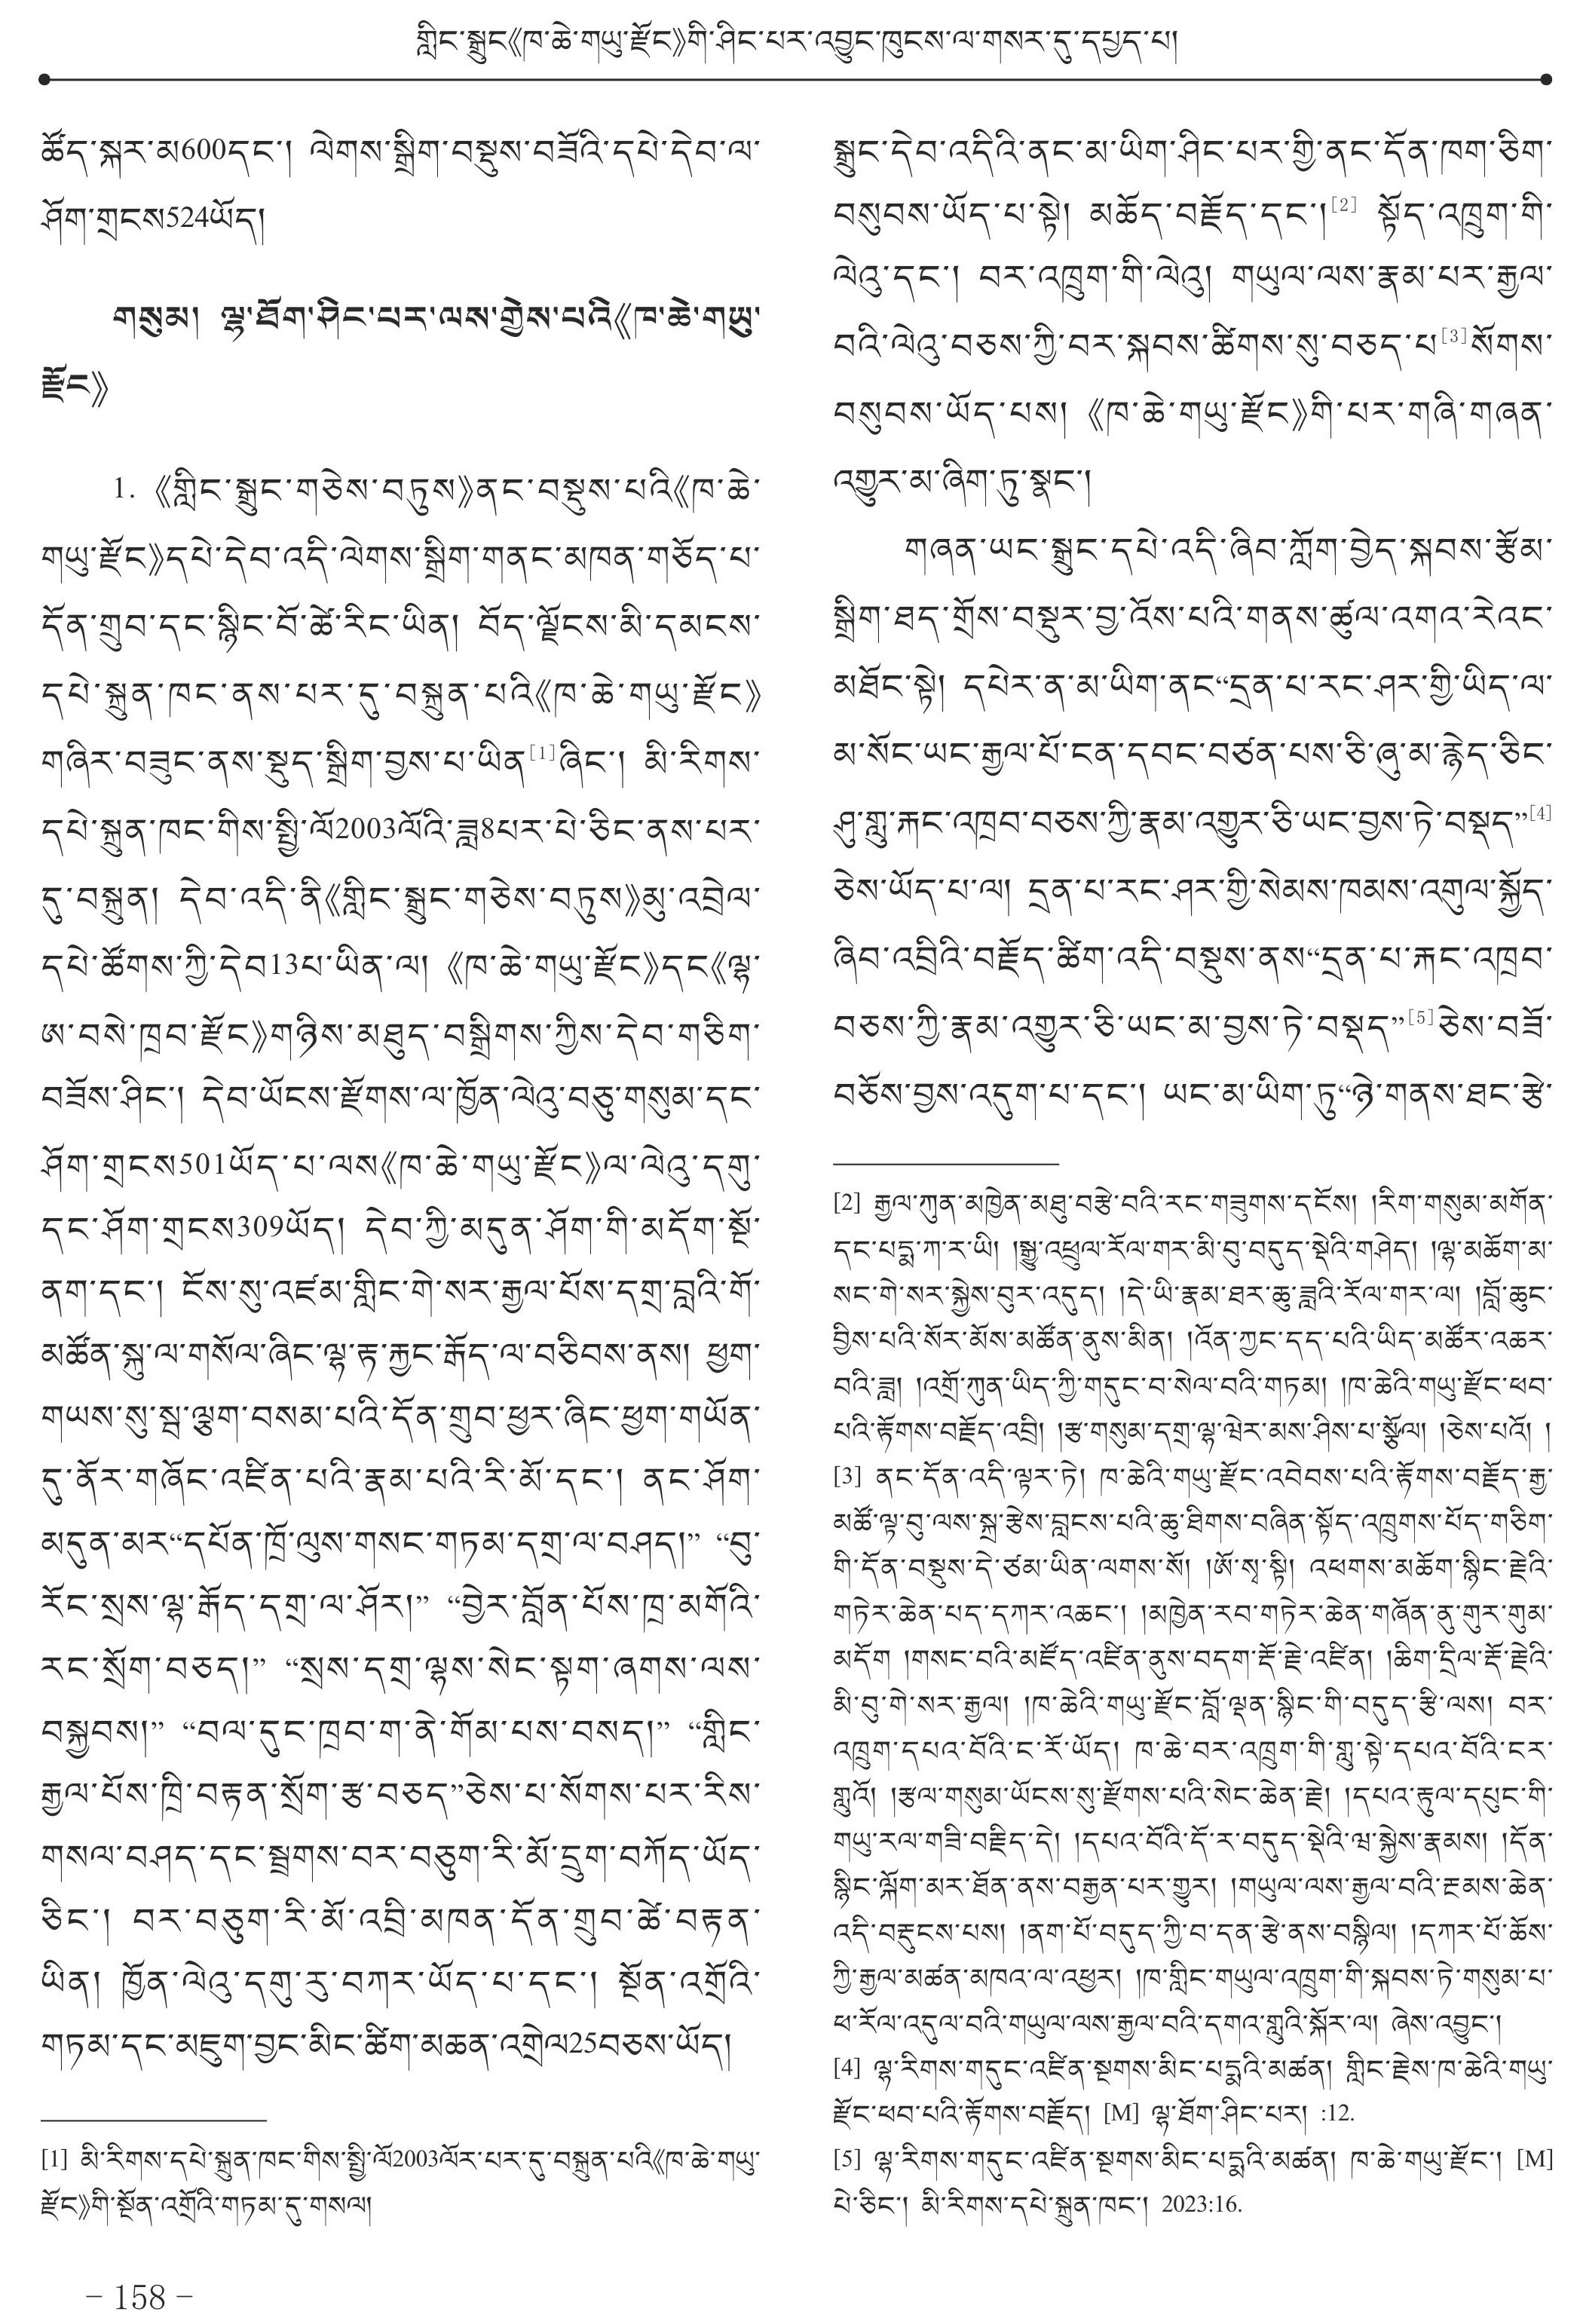 གླིང་སྒྲུང《ཁ་ཆེ་གཡུ་རྫོང》གི་ཤིང་པར་འབྱུང་ཁུངས་ལ་གསར་དུ་དཔྱད་པ།
ཚོད་སྐར་མ600དང་། ལེགས་སྒྲིག་བསྡུས་བཟོའི་དཔེ་དེབ་ལ་
ཤོག་གྲངས524ཡོད།
གསུམ། ལྷ་ཐོག་ཤིང་པར་ལས་གྱེས་པའི《ཁ་ཆེ་གཡུ་
རྫོང》
1. 《གླིང་སྒྲུང་གཅེས་བཏུས》ནང་བསྡུས་པའི《ཁ་ཆེ་
གཡུ་རྫོང》དཔེ་དེབ་འདི་ལེགས་སྒྲིག་གནང་མཁན་གཅོད་པ་
དོན་གྲུབ་དང་སྙིང་བོ་ཚེ་རིང་ཡིན། བོད་ལྗོངས་མི་དམངས་
དཔེ་སྐྲུན་ཁང་ནས་པར་དུ་བསྐྲུན་པའི《ཁ་ཆེ་གཡུ་རྫོང》
གཞིར་བཟུང་ནས་སྡུད་སྒྲིག་བྱས་པ་ཡིན[1]ཞིང་། མི་རིགས་
དཔེ་སྐྲུན་ཁང་གིས་སྤྱི་ལོ2003ལོའི་ཟླ8པར་པེ་ཅིང་ནས་པར་
དུ་བསྐྲུན། དེབ་འདི་ནི《གླིང་སྒྲུང་གཅེས་བཏུས》མུ་འབྲེལ་
དཔེ་ཚོགས་ཀྱི་དེབ13པ་ཡིན་ལ། 《ཁ་ཆེ་གཡུ་རྫོང》དང《ལྷ་
ཨ་བསེ་ཁྲབ་རྫོང》གཉིས་མཐུད་བསྒྲིགས་ཀྱིས་དེབ་གཅིག་
བཟོས་ཤིང་། དེབ་ཡོངས་རྫོགས་ལ་ཁྱོན་ལེའུ་བཅུ་གསུམ་དང་
ཤོག་གྲངས501ཡོད་པ་ལས《ཁ་ཆེ་གཡུ་རྫོང》ལ་ལེའུ་དགུ་
དང་ཤོག་གྲངས309ཡོད། དེབ་ཀྱི་མདུན་ཤོག་གི་མདོག་སྔོ་
ནག་དང་། ངོས་སུ་འཛམ་གླིང་གེ་སར་རྒྱལ་པོས་དགྲ་བླའི་གོ་
མཚོན་སྐུ་ལ་གསོལ་ཞིང་ལྷ་རྟ་རྐྱང་རྒོད་ལ་བཅིབས་ནས། ཕྱག་
གཡས་སུ་སྦ་ལྕག་བསམ་པའི་དོན་གྲུབ་ཕྱར་ཞིང་ཕྱག་གཡོན་
དུ་ནོར་གཞོང་འཛིན་པའི་རྣམ་པའི་རི་མོ་དང་། ནང་ཤོག་
མདུན་མར“དཔོན་ཁྲོ་ལུས་གསང་གཏམ་དགྲ་ལ་བཤད།” “བུ་
རོང་སྲས་ལྷ་རྒོད་དགྲ་ལ་ཤོར།” “བྱེར་བློན་པོས་ཁྲ་མགོའི་
རང་སྲོག་བཅད།” “སྲས་དགྲ་ལྷས་སེང་སྟག་ཞགས་ལས་
བསྐྱབས།” “བལ་དུང་ཁྲབ་ག་ནེ་གོམ་པས་བསད།” “གླིང་
རྒྱལ་པོས་ཁྲི་བརྟན་སྲོག་རྩ་བཅད”ཅེས་པ་སོགས་པར་རིས་
གསལ་བཤད་དང་སྦྲགས་བར་བཅུག་རི་མོ་དྲུག་བཀོད་ཡོད་
ཅིང་། བར་བཅུག་རི་མོ་འབྲི་མཁན་དོན་གྲུབ་ཚེ་བརྟན་
ཡིན། ཁྱོན་ལེའུ་དགུ་རུ་བཀར་ཡོད་པ་དང་། སྔོན་འགྲོའི་
གཏམ་དང་མཇུག་བྱང་མིང་ཚིག་མཆན་འགྲེལ25བཅས་ཡོད།
[1] མི་རིགས་དཔེ་སྐྲུན་ཁང་གིས་སྤྱི་ལོ2003ལོར་པར་དུ་བསྐྲུན་པའི《ཁ་ཆེ་གཡུ་
རྫོང》གི་སྔོན་འགྲོའི་གཏམ་དུ་གསལ།
སྒྲུང་དེབ་འདིའི་ནང་མ་ཡིག་ཤིང་པར་གྱི་ནང་དོན་ཁག་ཅིག་
བསུབས་ཡོད་པ་སྟེ། མཆོད་བརྗོད་དང་།[2] སྟོད་འཁྲུག་གི་
ལེའུ་དང་། བར་འཁྲུག་གི་ལེའུ། གཡུལ་ལས་རྣམ་པར་རྒྱལ་
བའི་ལེའུ་བཅས་ཀྱི་བར་སྐབས་ཚིགས་སུ་བཅད་པ[3]སོགས་
བསུབས་ཡོད་པས། 《ཁ་ཆེ་གཡུ་རྫོང》གི་པར་གཞི་གཞན་
འགྱུར་མ་ཞིག་ཏུ་སྣང་།
གཞན་ཡང་སྒྲུང་དཔེ་འདི་ཞིབ་ཀློག་བྱེད་སྐབས་རྩོམ་
སྒྲིག་ཐད་གྲོས་བསྡུར་བྱ་འོས་པའི་གནས་ཚུལ་འགའ་རེའང་
མཐོང་སྟེ། དཔེར་ན་མ་ཡིག་ནང“དྲན་པ་རང་ཤར་གྱི་ཡིད་ལ་
མ་སོང་ཡང་རྒྱལ་པོ་ངན་དབང་བཙན་པས་ཅི་ཞུ་མ་རྙེད་ཅིང་
ཤུ་གླུ་རྐང་འཁྲབ་བཅས་ཀྱི་རྣམ་འགྱུར་ཅི་ཡང་བྱས་ཏེ་བསྡད”[4]
ཅེས་ཡོད་པ་ལ། དྲན་པ་རང་ཤར་གྱི་སེམས་ཁམས་འགུལ་སྐྱོད་
ཞིབ་འབྲིའི་བརྗོད་ཚིག་འདི་བསྡུས་ནས“དྲན་པ་རྐང་འཁྲབ་
བཅས་ཀྱི་རྣམ་འགྱུར་ཅི་ཡང་མ་བྱས་ཏེ་བསྡད”[5]ཅེས་བཟོ་
བཅོས་བྱས་འདུག་པ་དང་། ཡང་མ་ཡིག་ཏུ“ཉེ་གནས་ཐང་རྩེ་
[2] རྒྱལ་ཀུན་མཁྱེན་མཐུ་བརྩེ་བའི་རང་གཟུགས་དངོས། །རིག་གསུམ་མགོན་
དང་པདྨ་ཀ་ར་ཡི། །སྒྱུ་འཕྲུལ་རོལ་གར་མི་བུ་བདུད་སྡེའི་གཤེད། །ལྷ་མཆོག་མ་
སང་གེ་སར་སྐྱེས་བུར་འདུད། །དེ་ཡི་རྣམ་ཐར་ཆུ་ཟླའི་རོལ་གར་ལ། །བློ་ཆུང་
བྱིས་པའི་སོར་མོས་མཚོན་ནུས་མིན། །འོན་ཀྱང་དད་པའི་ཡིད་མཚོར་འཆར་
བའི་ཟླ། །འགྲོ་ཀུན་ཡིད་ཀྱི་གདུང་བ་སེལ་བའི་གཏམ། །ཁ་ཆེའི་གཡུ་རྫོང་ཕབ་
པའི་རྟོགས་བརྗོད་འབྲི། །རྩ་གསུམ་དགྲ་ལྷ་ཝེར་མས་ཤིས་པ་སྩོལ། །ཅེས་པའོ། །
[3] ནང་དོན་འདི་ལྟར་ཏེ། ཁ་ཆེའི་གཡུ་རྫོང་འབེབས་པའི་རྟོགས་བརྗོད་རྒྱ་
མཚོ་ལྟ་བུ་ལས་སྐྲ་རྩེས་བླངས་པའི་ཆུ་ཐིགས་བཞིན་སྟོད་འཁྲུགས་པོད་གཅིག་
གི་དོན་བསྡུས་དེ་ཙམ་ཡིན་ལགས་སོ། །ཨོ་སྭ་སྟི། འཕགས་མཆོག་སྙིང་རྗེའི་
གཏེར་ཆེན་པད་དཀར་འཆང་། །མཁྱེན་རབ་གཏེར་ཆེན་གཞོན་ནུ་གུར་གུམ་
མདོག །གསང་བའི་མཛོད་འཛིན་ནུས་བདག་རྡོ་རྗེ་འཛིན། །ཆིག་དྲིལ་རྡོ་རྗེའི་
མི་བུ་གེ་སར་རྒྱལ། །ཁ་ཆེའི་གཡུ་རྫོང་བློ་ལྡན་སྙིང་གི་བདུད་རྩི་ལས། བར་
འཁྲུག་དཔའ་བོའི་ང་རོ་ཡོད། ཁ་ཆེ་བར་འཁྲུག་གི་གླུ་སྟེ་དཔའ་བོའི་ངར་
གླུའོ། །རྩལ་གསུམ་ཡོངས་སུ་རྫོགས་པའི་སེང་ཆེན་རྗེ། །དཔའ་རྟུལ་དཔུང་གི་
གཡུ་རལ་གཟི་བརྗིད་དེ། །དཔའ་བོའི་དོ་ར་བདུད་སྡེའི་ཝ་སྐྱེས་རྣམས། །དོན་
སྙིང་ལྐོག་མར་ཐོན་ནས་བརྒྱན་པར་གྱུར། །གཡུལ་ལས་རྒྱལ་བའི་རྔམས་ཆེན་
འདི་བརྡུངས་པས། །ནག་པོ་བདུད་ཀྱི་བ་དན་རྩེ་ནས་བསྙིལ། །དཀར་པོ་ཆོས་
ཀྱི་རྒྱལ་མཚན་མཁའ་ལ་འཕྱར། །ཁ་གླིང་གཡུལ་འཁྲུག་གི་སྐབས་ཏེ་གསུམ་པ་
ཕ་རོལ་འདུལ་བའི་གཡུལ་ལས་རྒྱལ་བའི་དགའ་གླུའི་སྐོར་ལ། ཞེས་འབྱུང་།
[4] ལྷ་རིགས་གདུང་འཛིན་སྔགས་མིང་པདྨའི་མཚན། གླིང་རྗེས་ཁ་ཆེའི་གཡུ་
རྫོང་ཕབ་པའི་རྟོགས་བརྗོད། [M] ལྷ་ཐོག་ཤིང་པར། :12.
[5] ལྷ་རིགས་གདུང་འཛིན་སྔགས་མིང་པདྨའི་མཚན། ཁ་ཆེ་གཡུ་རྫོང་། [M]
པེ་ཅིང་། མི་རིགས་དཔེ་སྐྲུན་ཁང་། 2023:16.
– 158 –